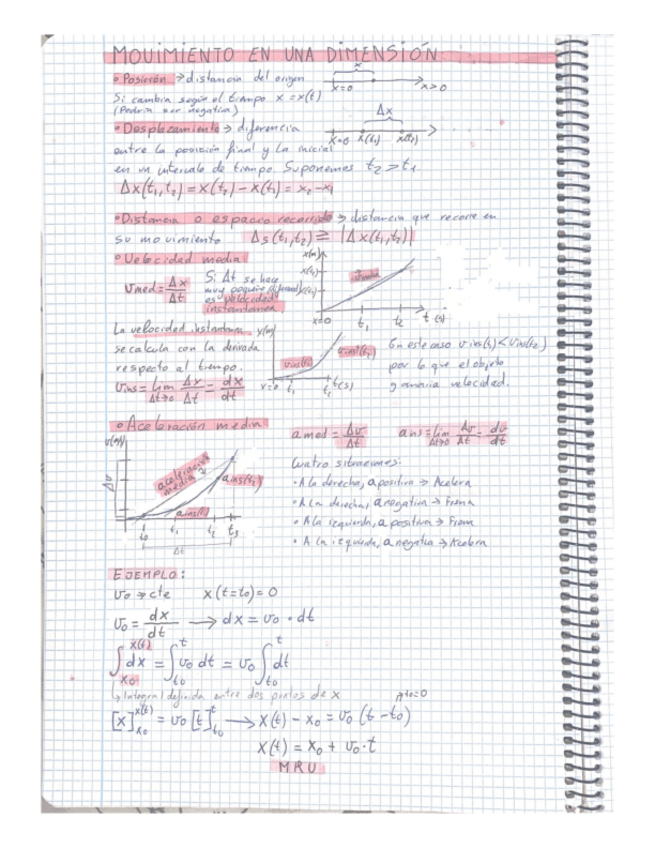 MOVIMIENTO EN UNA DIMENSIÓN
• Posición → distancia del origen
Si cambia según el tiempo x = x(t)
(Podría ser negativa)
x
x=0 x>0
• Desplazamiento → diferencia
entre la posición final y la inicial
en un intervalo de tiempo. Suponemos t₂ > t₁
Δx
x=0 x(t₁) x(t₂)
Δx(t₁,t₂) = x(t₂) - x(t₁) = x₂ - x₁
• Distancia o espacio recorrido → distancia que recorre en
su movimiento Δs(t₁,t₂) ≥ |Δx(t₁,t₂)|
• Velocidad media
vmed = Δx/Δt
Si Δt se hace
muy pequeño
es velocidad
instantánea
x(m)
x(t₂)
x(t₁)
x=0 t₁ t₂ t(s)
La velocidad instantánea
se calcula con la derivada
respecto al tiempo.
vins = lim Δt→0 Δx/Δt = dx/dt
x(m)
vins(t₁)
vins(t₂)
x=0 t₁ t₂ t(s)
En este caso vins(t₁) < vins(t₂)
por lo que el objeto
ganaría velocidad.
• Aceleración media
amed = Δv/Δt ains = lim Δt→0 Δv/Δt = dv/dt
Δv
aceleración
media
ains(t₂)
ains(t₁)
t₀ t₁ t₂ t₃
Δt
Cuatro situaciones:
• A la derecha, a positiva → Acelera
• A la derecha, a negativa → Frena
• A la izquierda, a positiva → Frena
• A la izquierda, a negativa → Acelera
EJEMPLO:
v₀ → cte x(t=t₀) = 0
v₀ = dx/dt → dx = v₀ · dt
∫_{x₀}^{x(t)} dx = ∫_{t₀}^{t} v₀ dt = v₀ ∫_{t₀}^{t} dt
↳ Integral definida entre dos puntos de x
[x]_{x₀}^{x(t)} = v₀ [t]_{t₀}^{t} → x(t) - x₀ = v₀ (t - t₀)
x(t) = x₀ + v₀·t
MRU